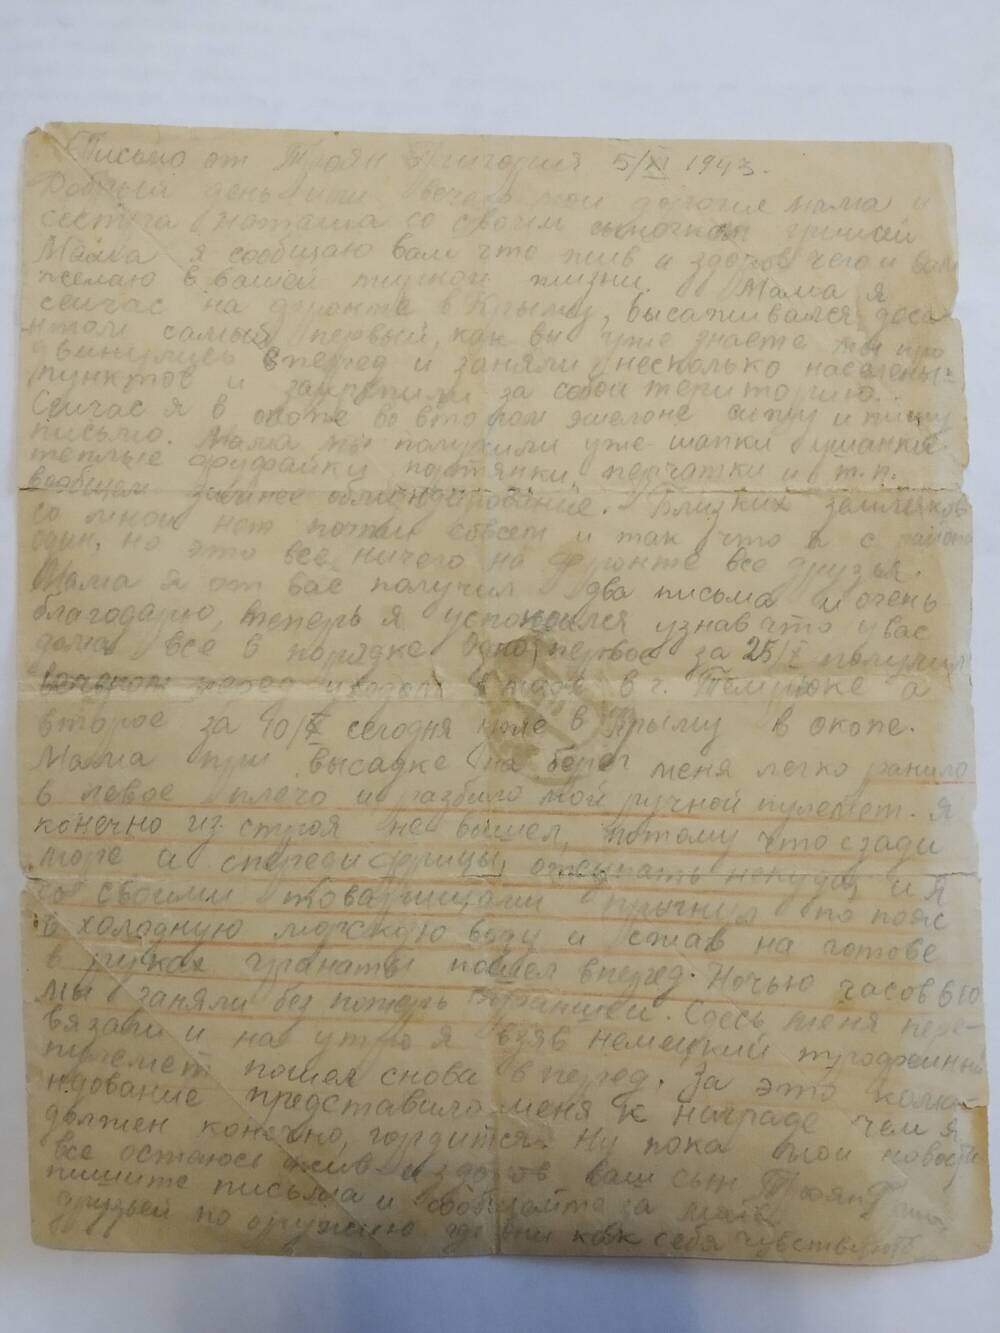 Письмо от Троян Григория 5/XI 1943.
Добрый день или вечер мои дорогие мама и
сестра Наташа со своим сыночком Гришей
Мама я сообщаю вам что жив и здоров чего и вам
желаю в вашей жизни. Мама я
сейчас на фронте в Крыму, высаживался деса-
нтом самый первый, как вы уже знаете мы про
двинулись вперед и заняли несколько населены-
пунктов и закрепили за собой територию.
Сейчас я в окопе во втором эшелоне сижу и пишу
письмо. Мама мы получили уже шапки ушанки
теплые фуфайки, портянки, перчатки и т.п.
вообщем зимнее обмундирование. Близких земляков
со мной нет почти совсем и так что я с района
один, но это все ничего на фронте все друзья.
Мама я от вас получил два письма и очень
благодарю, теперь я успокоился узнав что у вас
дома все в порядке одно первое за 25/X получил
вечером перед в г. Темрюке а
второе за 10/X сегодня уже в Крыму в окопе.
Мама при высадке на берег меня легко ранило
в левое плечо и разбило мой ручной пулемет. Я
конечно из строя не вышел, потому что сзади
море а спереди фрицы, отступать некуда, и я
со своими товарищами прыгнул по пояс
в холодную морскую воду и сжав на готове
в руках гранаты пошел вперед. Ночью часов в 10
мы заняли без потерь траншеи. Сдесь меня пере-
вязали и на утро я взяв немецкий трофейный
пулемет пошел снова вперед. За это кома-
ндование представило меня к награде чем я
должен конечно, гордится. Ну пока мои новости
все остаюсь жив и здоров ваш сын Троян
пишите письма и сообщайте за моих
друзьей по оружию где они как себя чувствуют